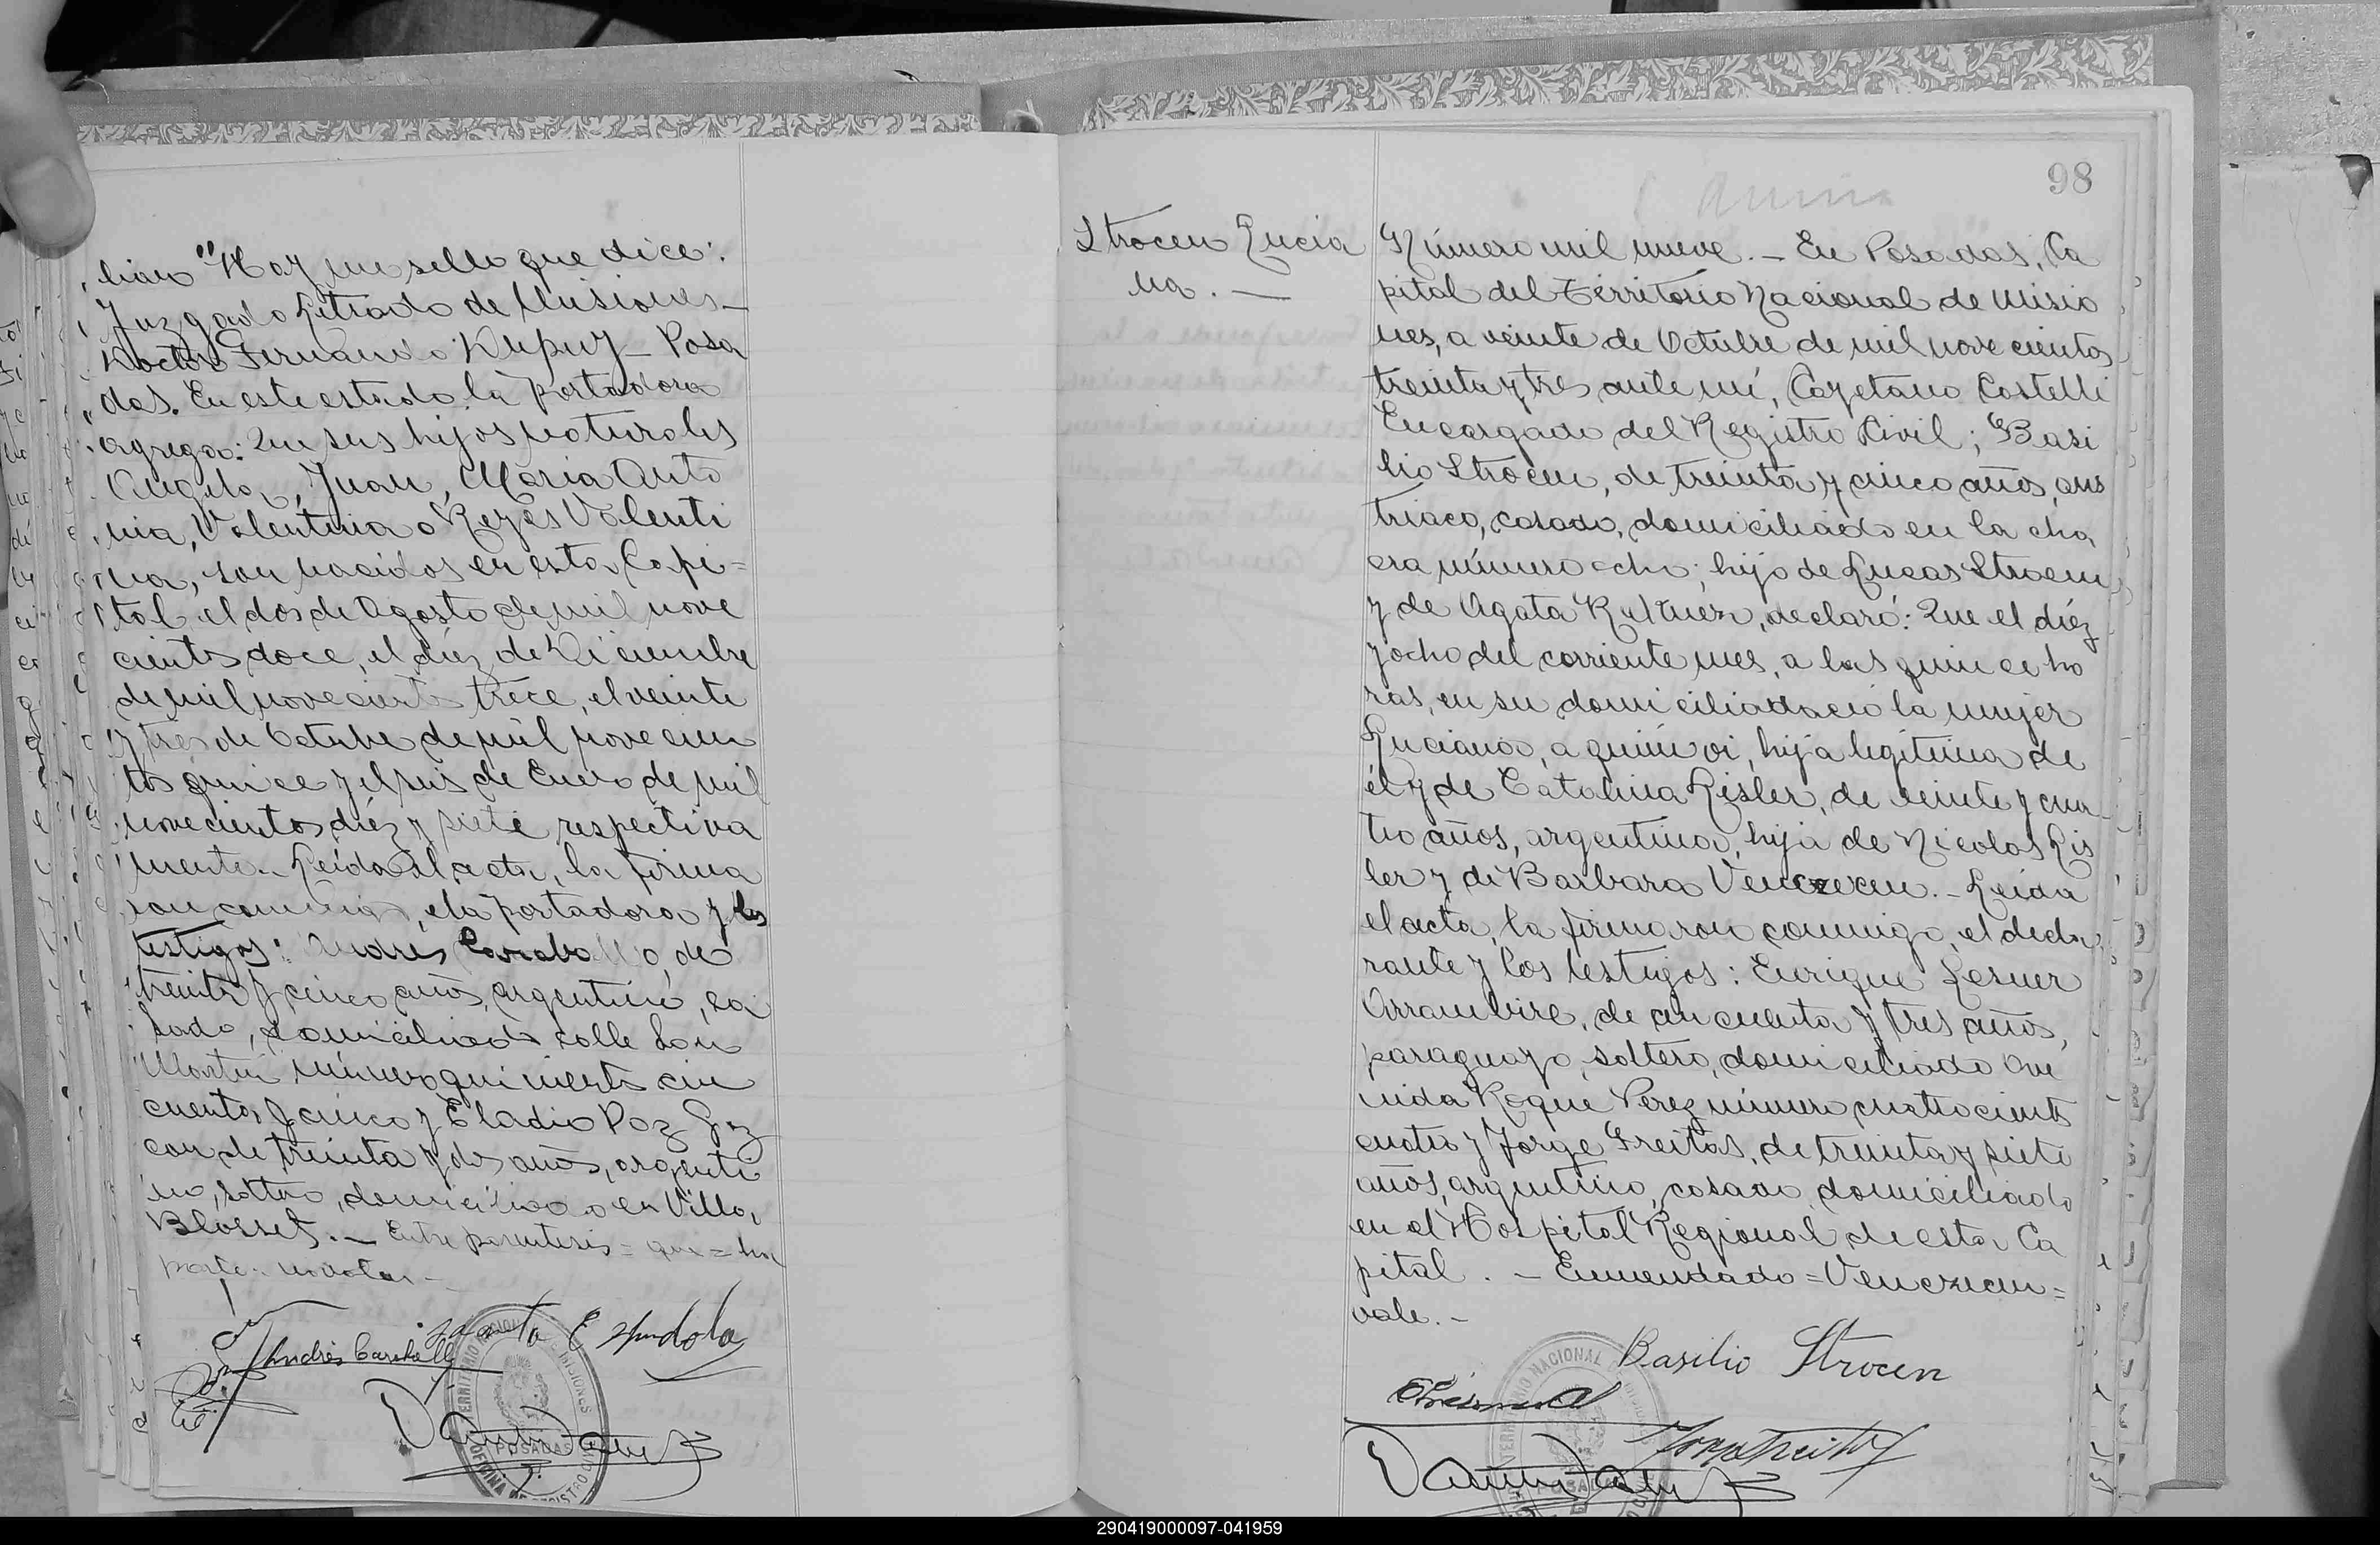 lian "Hay un sello que dice:
Juzgado Letrado de Misiones_
Doctor Fernando Dupuy_ Posa
das. En este estado la portadora
agrega: Que sus hijos naturales
Angela, Juan, Maria Anto
nia, Valentina o Reyes Valenti
na, son nacidos en esta Capi=
tal el dos de Agosto de mil nove
cientos doce, el diéz de Diciembre
de mil novecientos trece, el veinte
y tres de Octubre de mil novecien
tos quince y el seis de Enero de mil
novecientos diéz y siete respectiva
mente._ Leída el acta, la firma
ron conmigo, la portadora y los
testigos: Andrés Caraballo, de
treinta y cinco años, argentino, ca
sado, domiciliado calle San
Martin número quinientos cin
cuenta y cinco y Eladio Paz
de treinta y dos años, argenti
no, soltero, domiciliado en Villa
Blosset._ Entre parentesis = que =
no vale._
Jacinta Espindola
Andrés Caraballo
TERRITORIO NACIONAL DE MISIONES
POSADAS
OFICINA DE REGISTRO CIVIL
98
Strocen Lucia
na._
Número mil nueve._ En Posadas, Ca
pital del Territorio Nacional de Misio
nes, a veinte de Octubre de mil novecientos
treinta y tres ante mí, Cayetano Castelli
Encargado del Registro Civil; Basi
lio Strocen, de treinta y cinco años, aus
triaco, casado, domiciliado en la cha
cra número ocho; hijo de Lucas Strocen
y de Agata, declaró: Que el diéz
y ocho del corriente mes, a las quince ho
ras, en su domicilio nació la mujer
Luciana, a quien vi, hija legítima de
él y de Catalina Lisler, de veinte y cua
tro años, argentina, hija de Nicolas Lis
ler y de Barbara Venczecen._ Leída
el acta, la firmaron conmigo, el decla
rante y los testigos: Enrique Lesner
Arrambire, de cincuenta y tres años,
paraguayo, soltero, domiciliado Ave
nida Roque Perez número cuatrocientos
cuatro y Jorge Freitas, de treinta y siete
años, argentino, casado, domiciliado
en el Hospital Regional de esta Ca
pital._ Enmendado = Venczecen =
vale._
Basilio Strocen
290419000097-041959